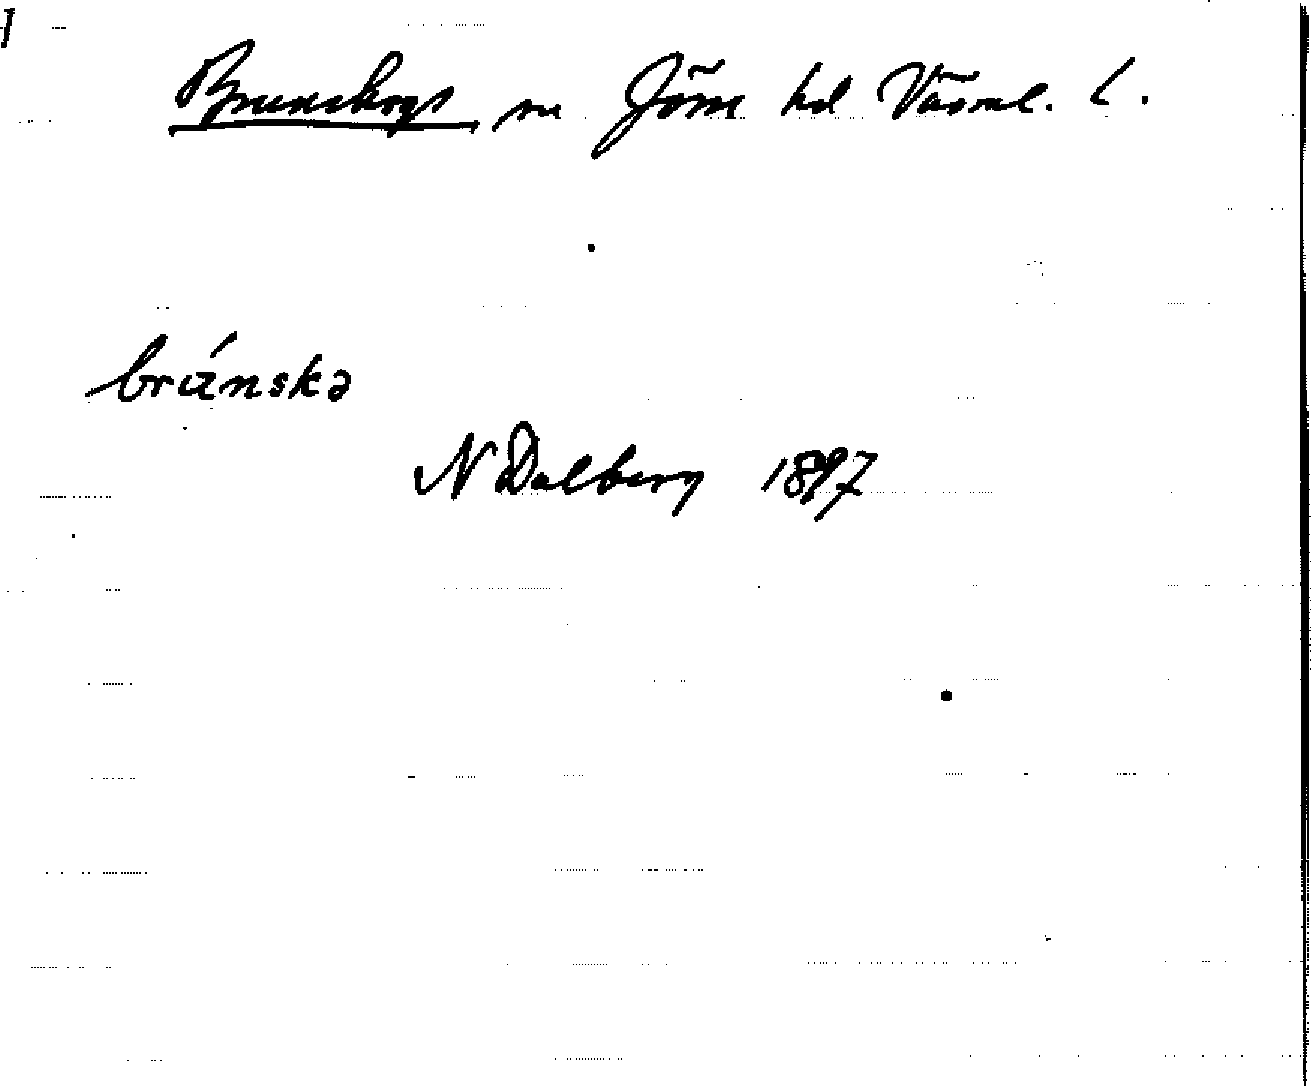 Brunskogs sn Jösse hd Värml. l.
bránskə
N Dalberg 1897